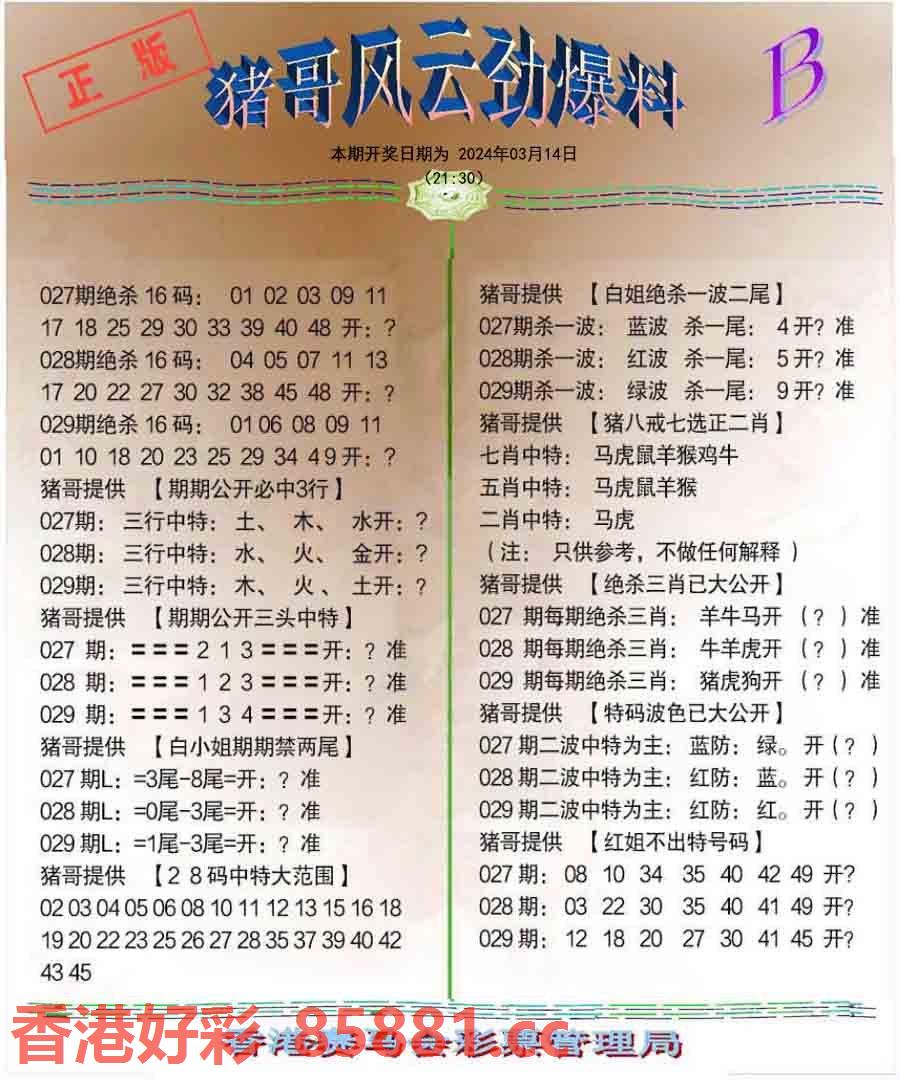 正版
猪哥风云劲爆料
B
本期开奖日期为 2024年03月14日
(21:30)
027期绝杀16码： 01 02 03 09 11
17 18 25 29 30 33 39 40 48 开：?
028期绝杀16码： 04 05 07 11 13
17 20 22 27 30 32 38 45 48 开：?
029期绝杀16码： 01 06 08 09 11
01 10 18 20 23 25 29 34 4 9 开：?
猪哥提供 【期期公开必中3行】
027期：三行中特：土、 木、 水开：?
028期：三行中特：水、 火、 金开：?
029期：三行中特：木、 火、 土开：?
猪哥提供 【期期公开三头中特】
027 期：===2 1 3===开：? 准
028 期：===1 2 3===开：? 准
029 期：===1 3 4===开：? 准
猪哥提供 【白小姐期期禁两尾】
027期L：=3尾-8尾=开：? 准
028期L：=0尾-3尾=开：? 准
029期L：=1尾-3尾=开：? 准
猪哥提供 【2 8码中特大范围】
02 03 04 05 06 08 10 11 12 13 15 16 18
19 20 22 23 25 26 27 28 35 37 39 40 42
43 45
猪哥提供 【白姐绝杀一波二尾】
027期杀一波： 蓝波 杀一尾： 4开? 准
028期杀一波： 红波 杀一尾： 5开? 准
029期杀一波： 绿波 杀一尾： 9开? 准
猪哥提供 【猪八戒七选正二肖】
七肖中特： 马虎鼠羊猴鸡牛
五肖中特： 马虎鼠羊猴
二肖中特： 马虎
（注： 只供参考，不做任何解释）
猪哥提供 【绝杀三肖已大公开】
027 期每期绝杀三肖： 羊牛马开 （?）准
028 期每期绝杀三肖： 牛羊虎开 （?）准
029 期每期绝杀三肖： 猪虎狗开 （?）准
猪哥提供 【特码波色已大公开】
027期二波中特为主：蓝防：绿。开（?）
028期二波中特为主：红防：蓝。开（?）
029期二波中特为主：红防：红。开（?）
猪哥提供 【红姐不出特号码】
027期： 08 10 34 35 40 42 49 开?
028期： 03 22 30 35 40 41 49 开?
029期： 12 18 20 27 30 41 45 开?
香港好彩 85881.cc
香港赛马会彩票管理局